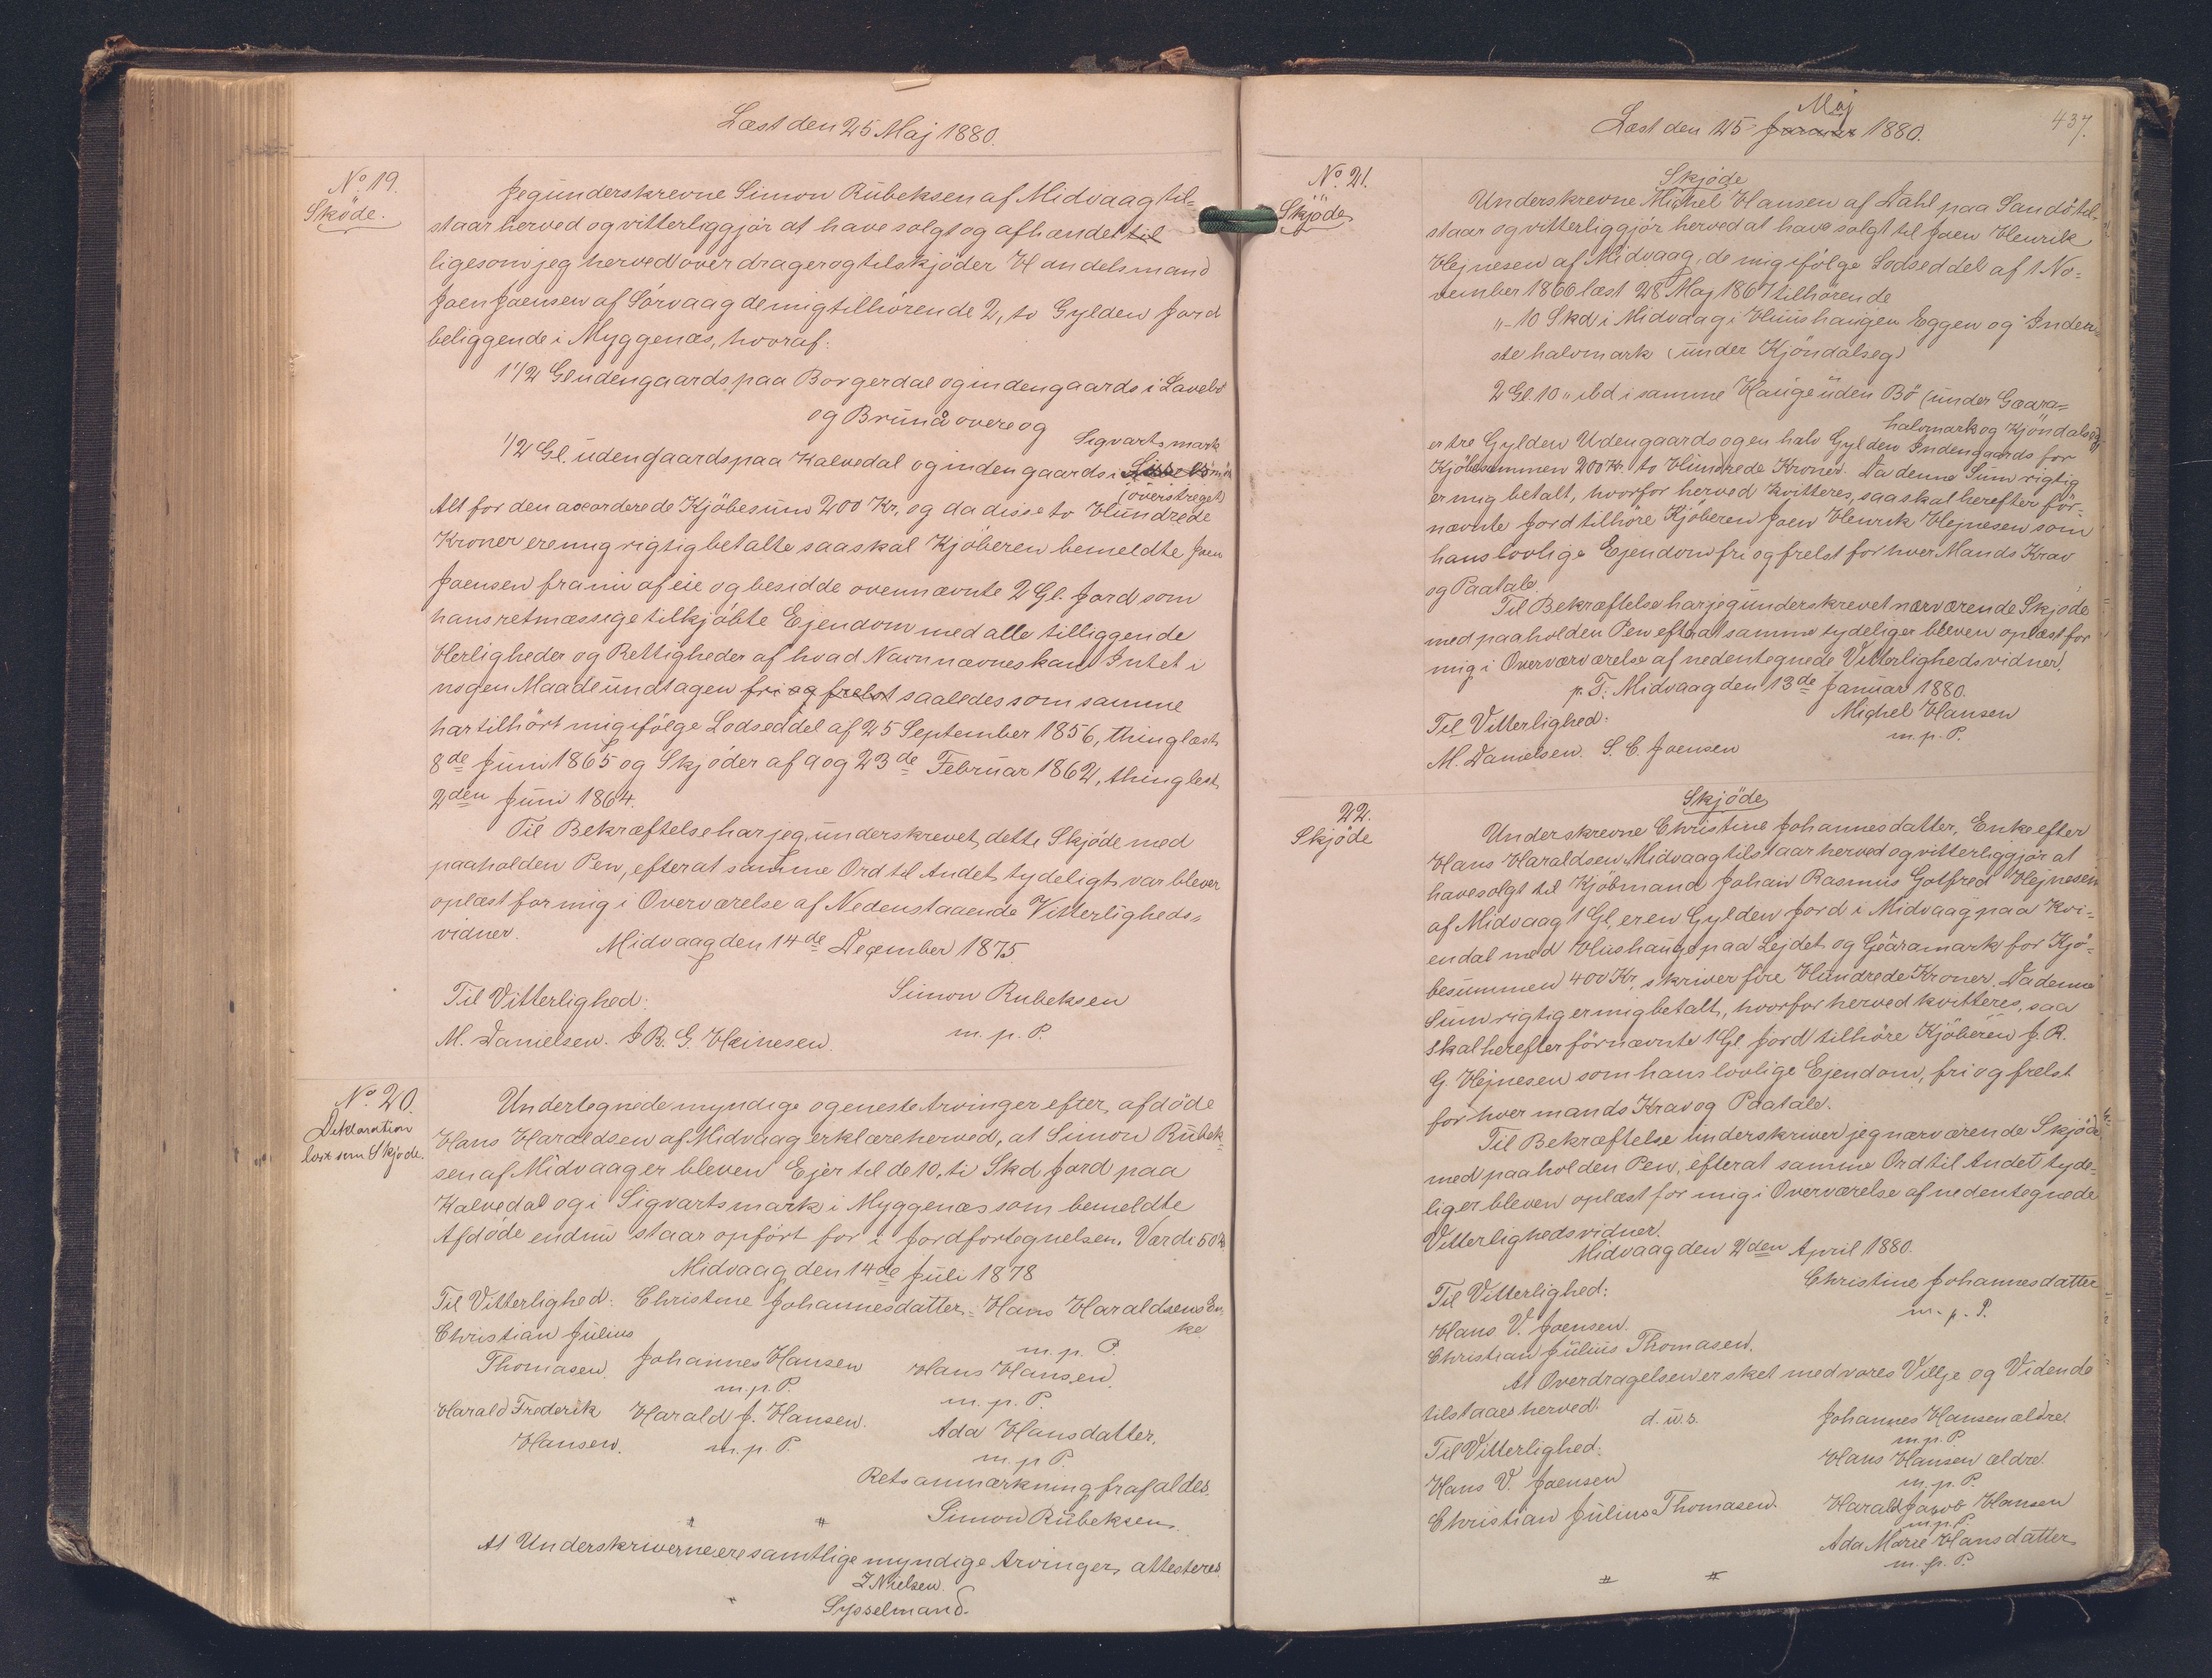 Læst den 25 Maj 1880.
No. 19.
Sköde.
Jeg underskrevne Simon Rubeksen af Midvaag til-
staar herved og vitterliggjør at have solgt og afhændet til
ligesom jeg herved overdrager og tilskjøder Handelsmand
Joen Joensen af Sörvaag de mig tilhørende 2, to Gylden Jord
beliggende i Myggenæs, hvoraf:
1 1/2 Gl udengaards paa Borgerdal og indengaards i
og Brunå overe og
Sigvartsmark
1/2 Gl. udengaards paa Kalvedal og indengaards i
(overstreget)
Alt for den accorderede Kjöbesum 200 Kr, og da disse to Hundrede
Kroner ere mig rigtig betalte saa skal Kjöberen bemeldte Joen
Joensen fra nu af eie og besidde ovennævnte 2 Gl. Jord som
hans retmæssige tilkjöbte Ejendom med alle tilliggende
Herligheder og Rettigheder af hvad Navn nævnes kan Intet i
nogen Maade undtagen fri og frelst saaledes som samme
har tilhört mig ifölge Lodseddel af 25 September 1856, thinglæst
8de Juni 1865 og Skjöder af 9 og 23de Februar 1862, thinglest
2den Juni 1864.
Til Bekræftelse har jeg underskrevet dette Skjöde med
paaholden Pen, efterat samme Ord til Andet tydeligt var blever
oplæst for mig i Overværelse af Nedenstaaende Vitterligheds-
vidner.
Midvaag den 14de December 1875.
Til Vitterlighed:
Simon Rubeksen
M. Danielsen. J R. G. Heinesen.
m. p. P.
No. 20.
Deklaration
læst som Skjøde.
Undertegnede myndige og eneste Arvinger efter afdöde
Hans Haraldsen af Midvaag erklære herved, at Simon Rubek-
sen af Midvaag er bleven Ejer til de 10, ti Skd Jord paa
Kalvedal og i Sigvartsmark i Myggenæs som bemeldte
Afdöde endnu staar opfört for i Jordfortegnelsen. Værdi 50 Kr.
Midvaag den 14de Juli 1878
Til Vitterlighed: Christine Johannesdatter - Hans Haraldsens En-
ke
Christian Julius
m. p. P.
Thomasen Johannes Hansen Hans Hansen
m. p. P. m. p. P.
Harald Frederik Harald J. Hansen. Ada Hansdatter.
Hansen. m. p. P. m. p P.
Retsanmærkning frafaldes.
Simon Rubeksen.
At Underskriverne ere samtlige myndige Arvinger, attesteres
Nielsen.
Sysselmand.
437.
Maj
Læst den 25 Januar 1880.
No. 21.
Skjöde
Skjöde
Underskrevne Michel Hansen af Dahl paa Sandö til-
staar og vitterliggjör herved at have solgt til Joen Henrik
Hejnesen af Midvaag, de mig ifölge Lodseddel af 1 No-
vember 1866 læst 28 Maj 1867 tilhörende
"- 10 Skd i Midvaag i Huushaugen Eggen og Inder-
ste halvmark (under Kjöndalseg)
2 Gl. 10 " ibd i samme Hauge uden Bö (under Geara-
halvmark og Kjöndalseg)
er tre Gylden Udengaards og en halv Gylden Indengaards for
Kjöbesummen 200 Kr. to Hundrede Kroner. Da denne Sum rigtig
er mig betalt, hvorfor herved kvitteres, saa skal herefter för-
nævnte Jord tilhöre Kjöberen Joen Henrik Hejnesen som
hans lovlige Ejendom fri og frelst for hver Mands Krav
og Paatale.
Til Bekræftelse har jeg underskrevet nærværende Skjöde
med paaholden Pen efterat samme tydelig er bleven oplæst for
mig i Overværværelse af nedentegnede Vitterlighedsvidner.
p. T. Midvaag den 13de Januar 1880.
Til Vitterlighed:
Michel Hansen
m. p. P.
M. Danielsen. S. C. Joensen
22.
Skjöde
Skjöde
Underskrevne Christine Johannesdatter, Enke efter
Hans Haraldsen Midvaag tilstaar herved og vitterliggjör at
have solgt til Kjöbmand Johan Rasmus Gotfred Hejnesen
af Midvaag 1 Gl, er en Gylden Jord i Midvaag paa Kvi-
endal med Hushauge paa Lejdet og Gearamark for Kjö-
besummen 400 Kr, skriver fire Hundrede Kroner. Da denne
Sum rigtig er mig betalt, hvorfor herved kvitteres, saa
skal herefter förnævnte 1 Gl Jord tilhöre Kjöberen J. R.
G. Hejnesen som hans lovlige Ejendom, fri og frelst
for hver mands Krav og Paatale.
Til Bekræftelse underskriver jeg nærværende Skjöde
med paaholden Pen, efterat samme Ord til Andet tyde-
lig er bleven oplæst for mig i Overværelse af nedentegnede
Vitterlighedsvidner.
Midvaag den 2den April 1880.
Til Vitterlighed:
Christine Johannesdatter
m. p. P.
Hans V. Joensen.
Christian Julius Thomasen.
At Overdragelsen er sket med vores Villje og Vidende
tilstaaes herved.
d. u. s.
Johannes Hansen ældre.
m. p. P.
Til Vitterlighed:
Hans Hansen ældre.
m. p. P.
Hans V. Joensen
Harald Jacob Hansen
m. p. P.
Christian Julius Thomasen.
Ada Marie Hansdatter
m. p. P.